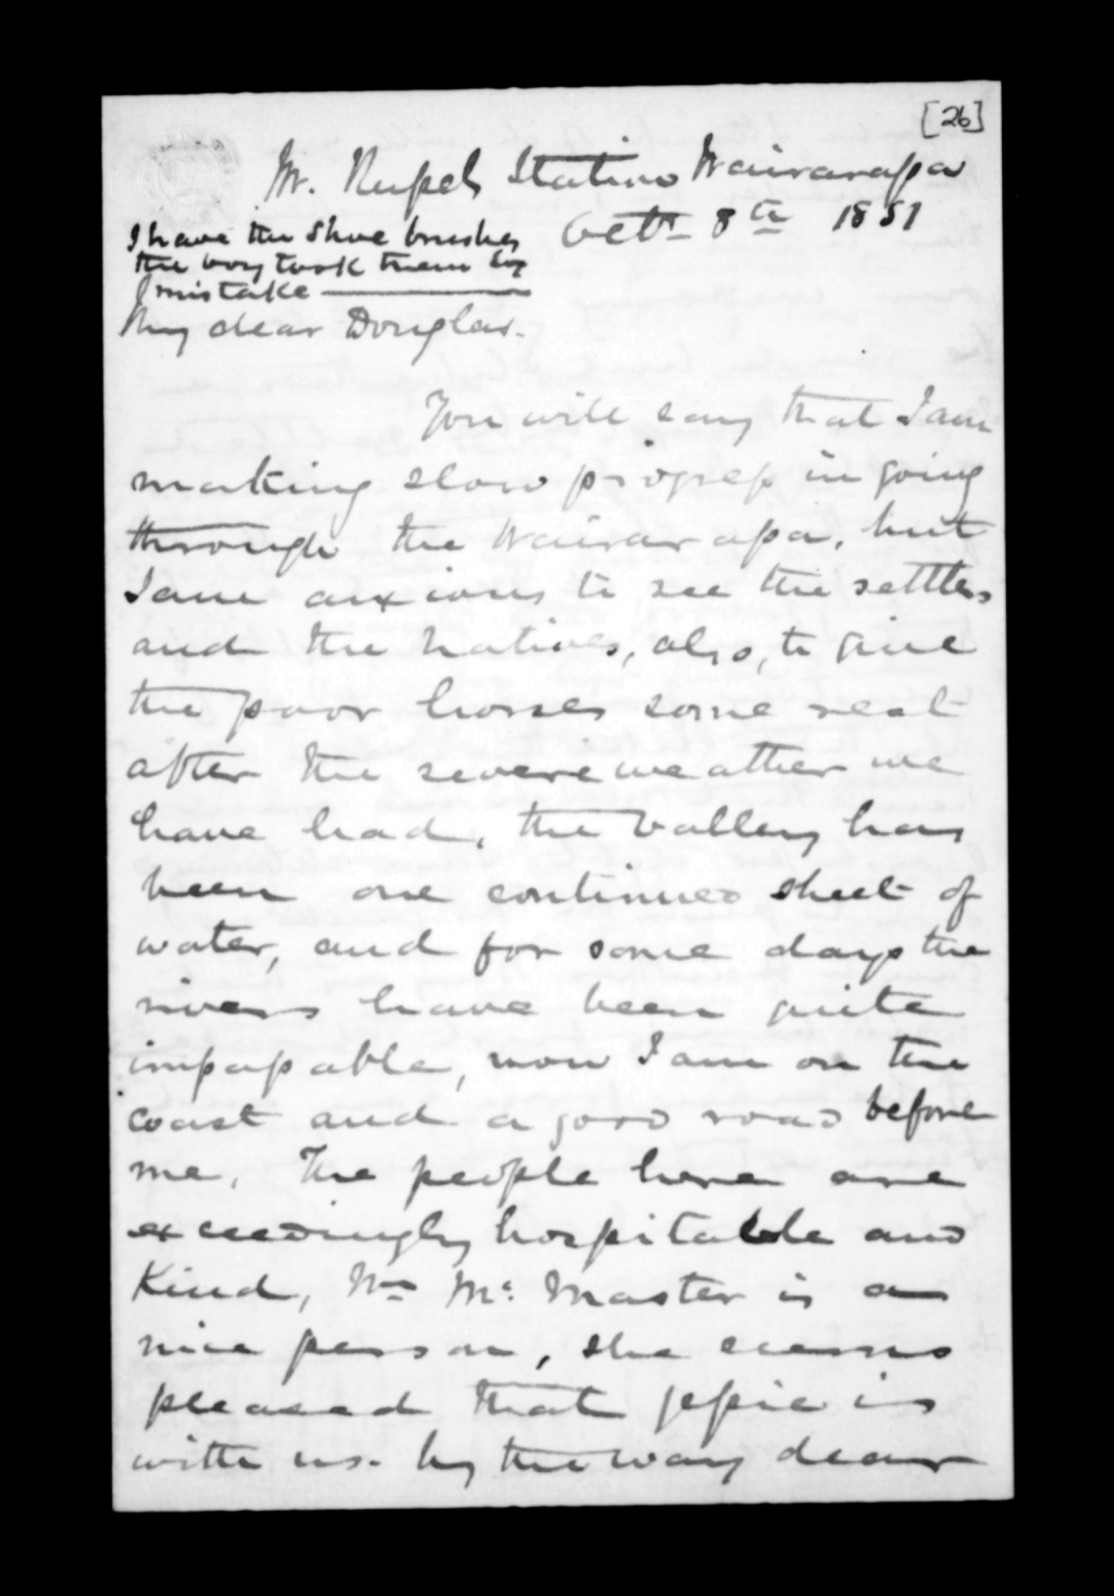 [26]
Mr. Russels Station Wairarapa
Octr 8th 1851
I have the shoe brushes
the boy took them by
mistake
My dear Douglas.
You will say that I am
making slow progress in going
through the Wairarapa, but
I am anxious to see the settlers
and the Natives, also, to give
the poor horses some rest
after the severe weather we
have had, the valley has
been one continued sheet of
water, and for some days the
rivers have been quite
impassable, now I am on the
coast and a good road before
me. The people here are
exceedingly hospitable and
Kind, Mrs Mc Master is a
nice person, she seems
pleased that Jessie is
with us. by the way dear